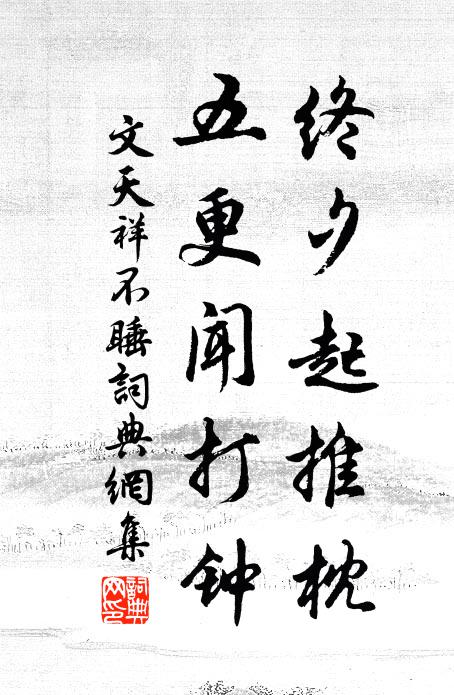 终夕起推枕
五更闻打钟
文天祥不睡詞典網集
詞典